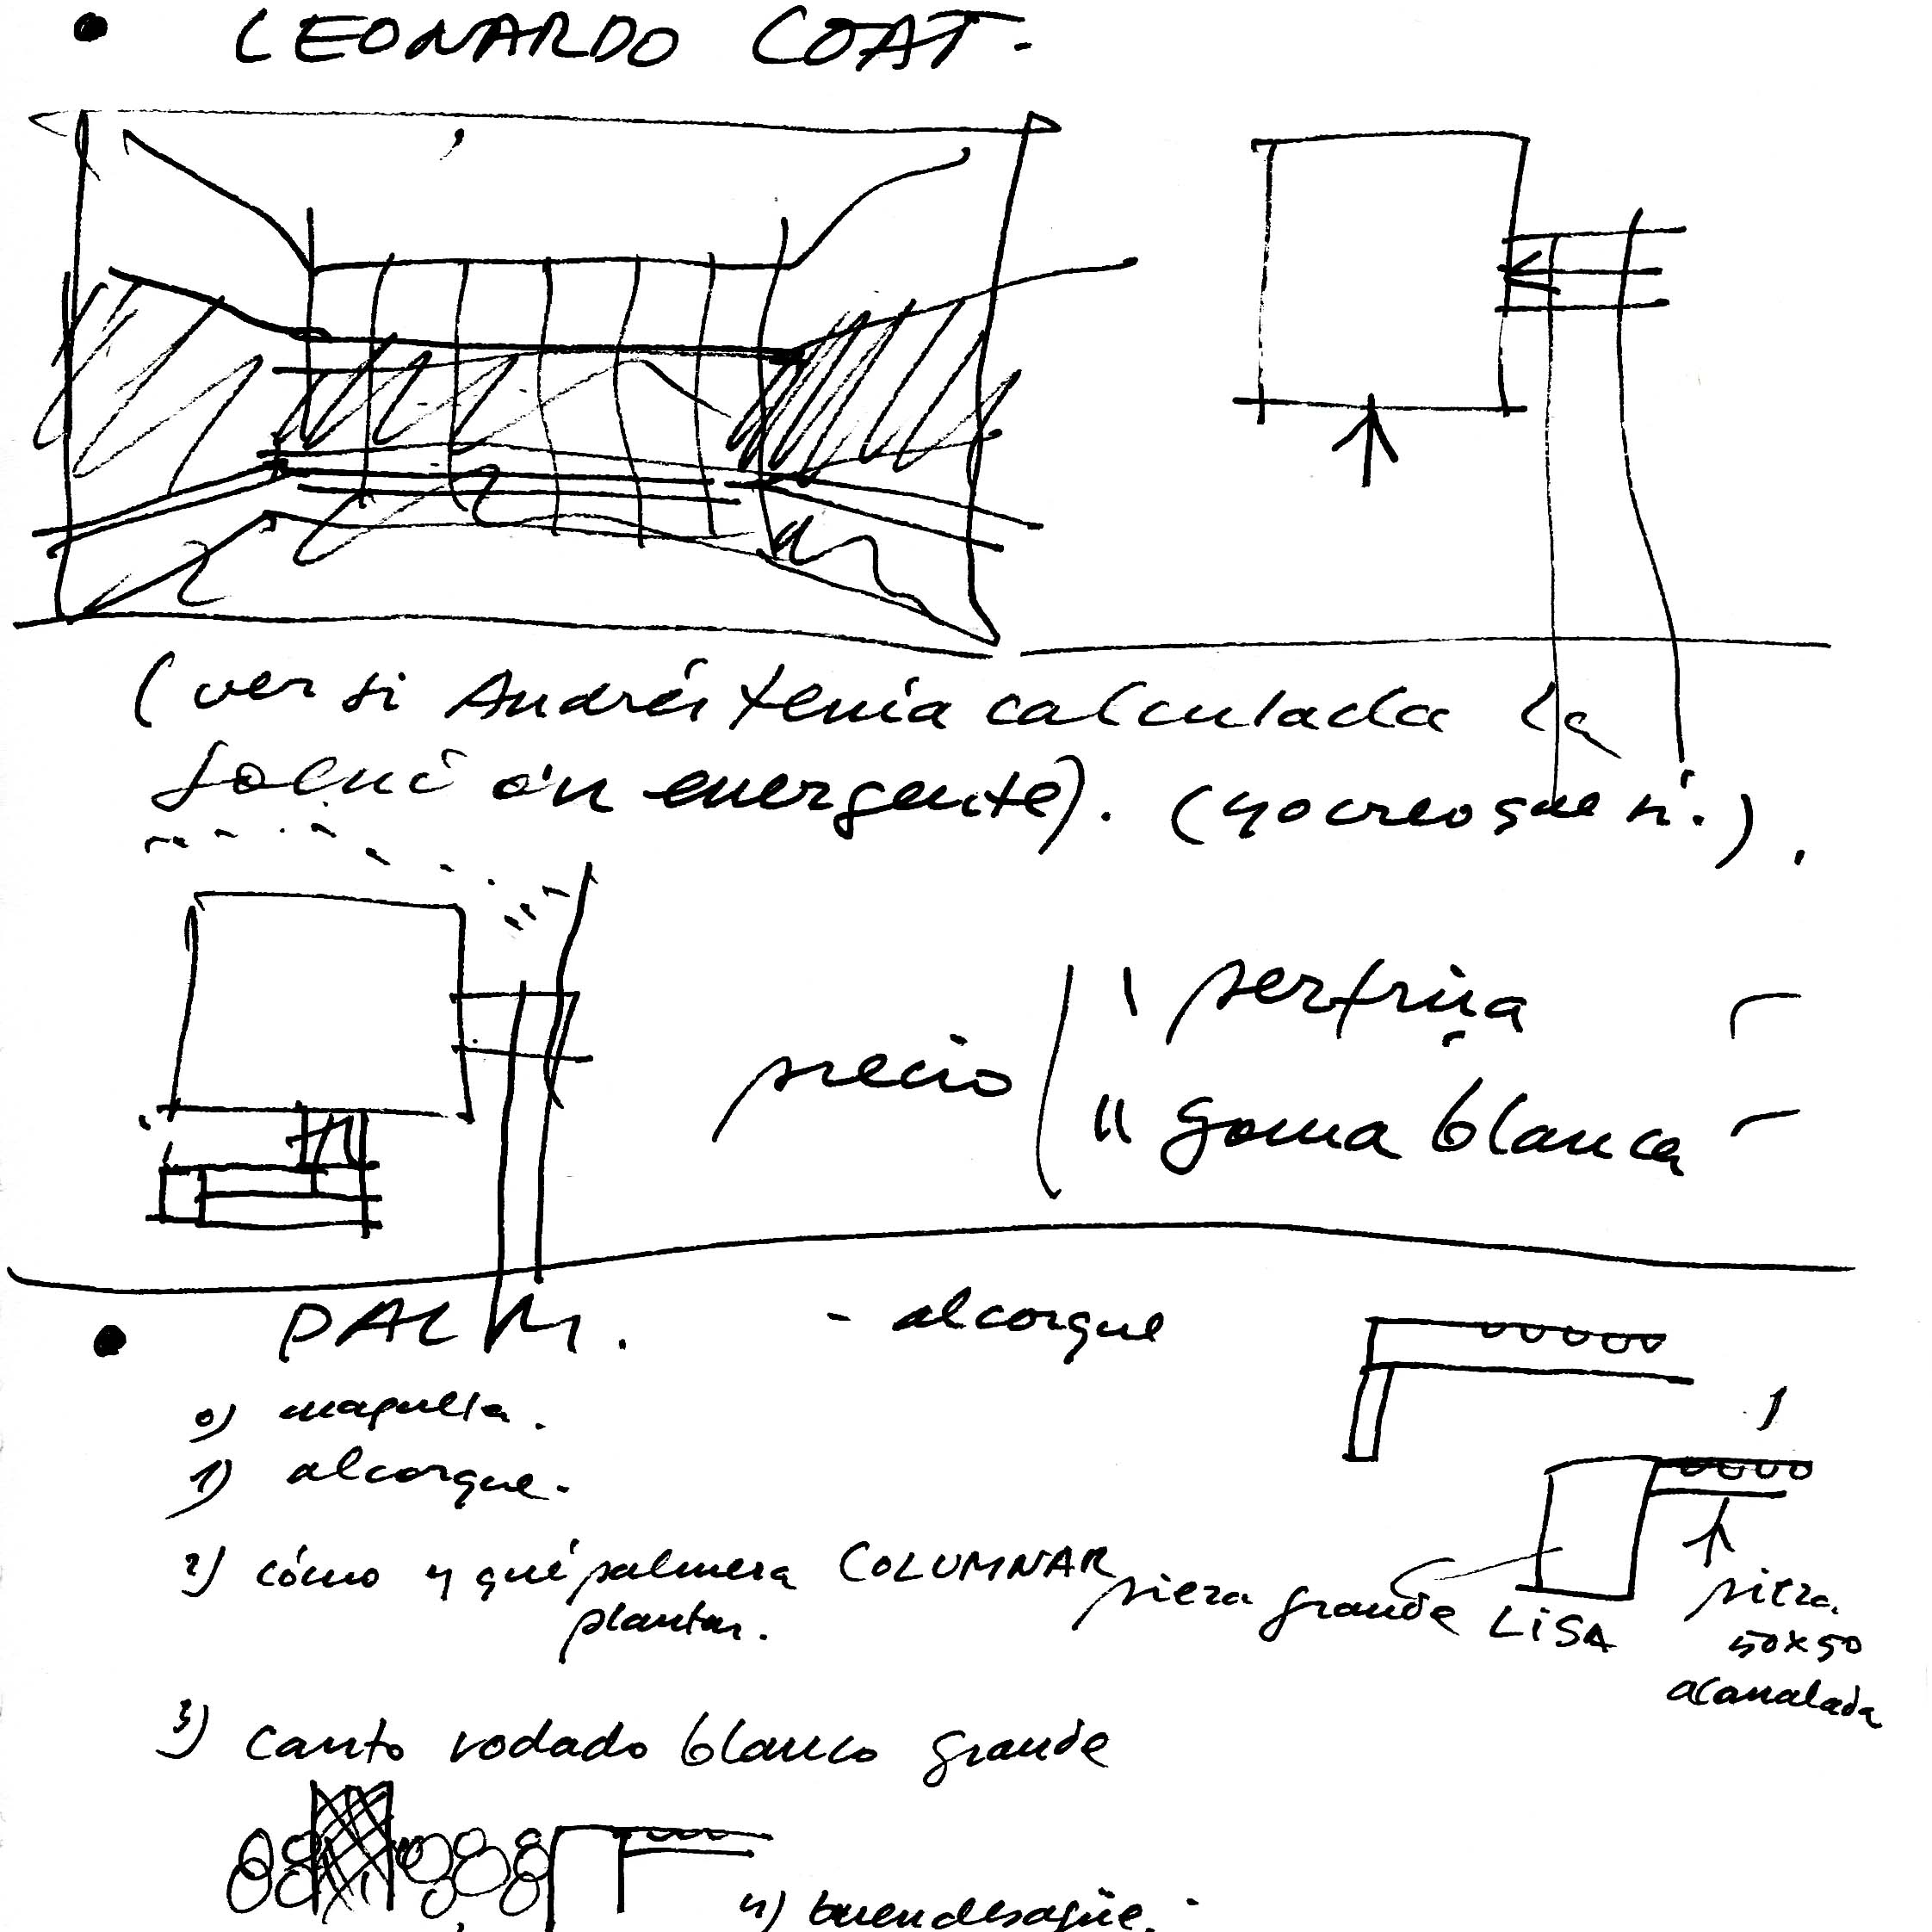 • LEONARDO COAT.
(ver si Andrés tenía calculada la
solución emergente). (yo creo que sí.).
precio
" perfrisa
" goma blanca
• PALM.
- alcorque
0) maqueta.
1) alcorque.
2) cómo y qué palmera COLUMNAR
plantar.
pieza grande LISA
pieza
50x50
acanalada
3) canto rodado blanco grande
4) buen desagüe.